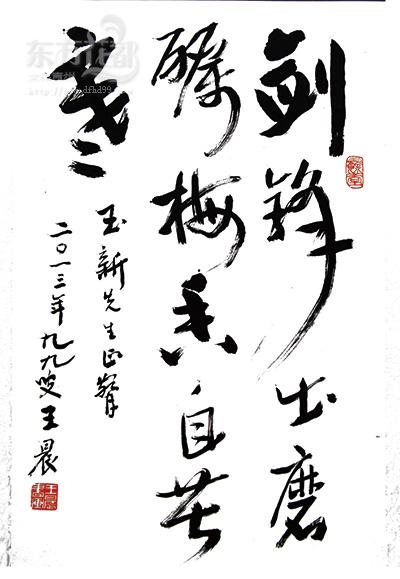 剑锋出磨
砺梅香自苦
寒
玉新先生正
二〇一三年九九叟王晨
东方花都
dfhd99.com